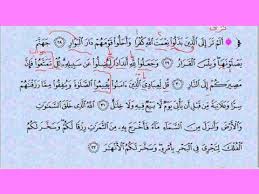 ﴿ أَلَمْ تَرَ إِلَى ٱلَّذِينَ بَدَّلُوا۟ نِعْمَتَ ٱللَّهِ كُفْرًا وَأَحَلُّوا۟ قَوْمَهُمْ دَارَ ٱلْبَوَارِ ﴿٢٨﴾ جَهَنَّمَ
يَصْلَوْنَهَا ۖ وَبِئْسَ ٱلْقَرَارُ ﴿٢٩﴾ وَجَعَلُوا۟ لِلَّهِ أَندَادًا لِّيُضِلُّوا۟ عَن سَبِيلِهِۦ ۗ قُلْ تَمَتَّعُوا۟ فَإِنَّ
مَصِيرَكُمْ إِلَى ٱلنَّارِ ﴿٣٠﴾ قُل لِّعِبَادِىَ ٱلَّذِينَ ءَامَنُوا۟ يُقِيمُوا۟ ٱلصَّلَوٰةَ وَيُنفِقُوا۟ مِمَّا رَزَقْنَٰهُمْ
سِرًّا وَعَلَانِيَةً مِّن قَبْلِ أَن يَأْتِىَ يَوْمٌ لَّا بَيْعٌ فِيهِ وَلَا خِلَٰلٌ ﴿٣١﴾ ٱللَّهُ ٱلَّذِى خَلَقَ ٱلسَّمَٰوَٰتِ
وَٱلْأَرْضَ وَأَنزَلَ مِنَ ٱلسَّمَآءِ مَآءً فَأَخْرَجَ بِهِۦ مِنَ ٱلثَّمَرَٰتِ رِزْقًا لَّكُمْ ۖ وَسَخَّرَ لَكُمُ
ٱلْفُلْكَ لِتَجْرِىَ فِى ٱلْبَحْرِ بِأَمْرِهِۦ ۖ وَسَخَّرَ لَكُمُ ٱلْأَنْهَٰرَ ﴿٣٢﴾